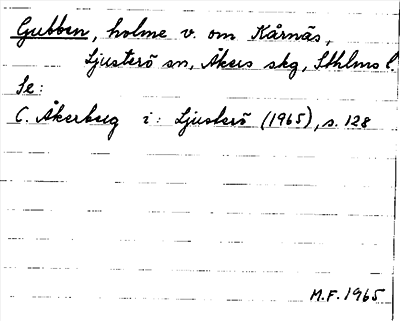 Gubben, holme v. om Kårnäs,
Ljusterö sn, Åkers skg, Sthlms l.
Se:
C. Åkerberg i: Ljusterö (1965), s. 128
M.F. 1965